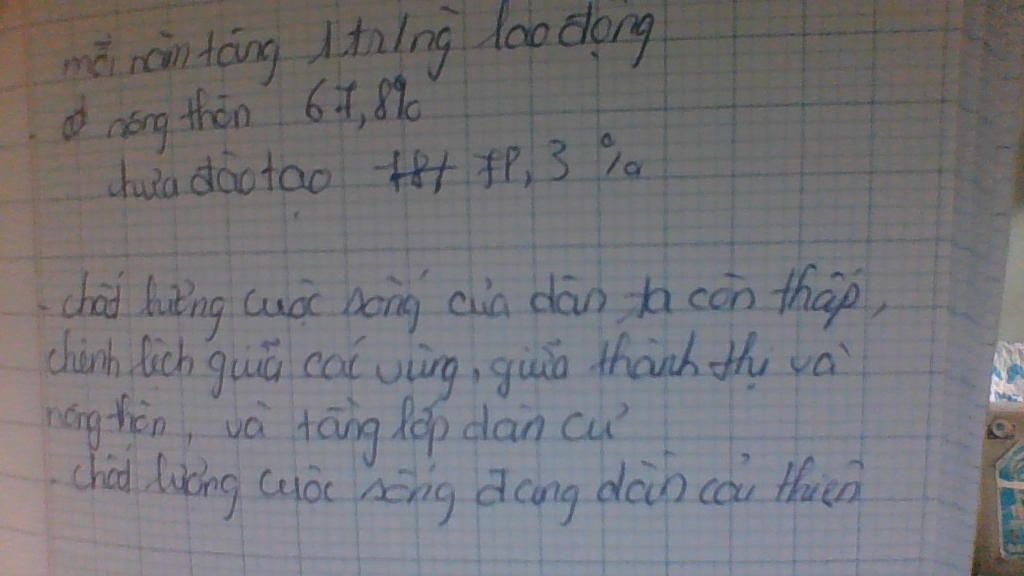 mỗi năm tăng 1 triệu lao động
ở nông thôn 67,8%
chưa đào tạo 78,3 %
- chất lượng cuộc sống của dân ta còn thấp,
chênh lệch giữa các vùng, giữa thành thị và
nông thôn, và tầng lớp dân cư
- chất lượng cuộc sống đang dần cải thiện